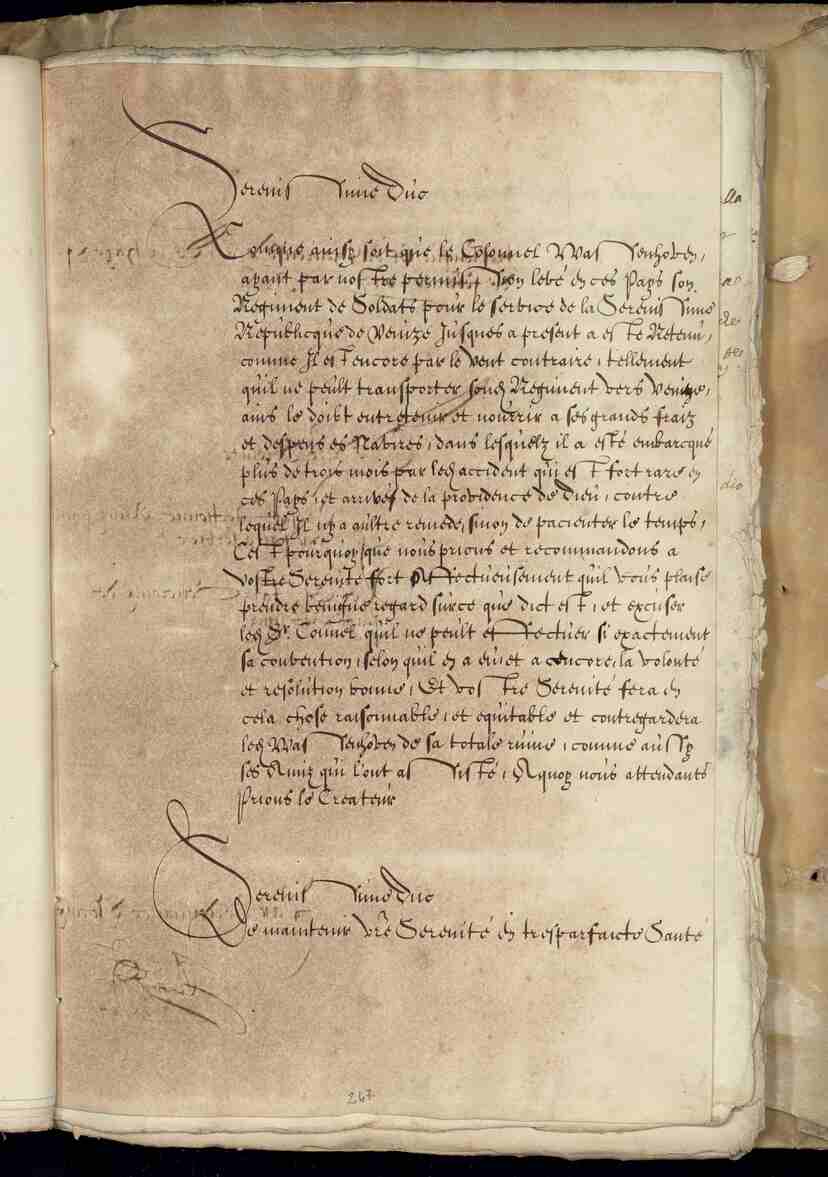 Serenissime Duc
Comme ainsy soit que le Colonnel Wassenhoven,
ayant par nostre permission levé en ces Pays son
Regiment de Soldats pour le service de la Serenissime
Republicque de Venize Jusques a present a este Retenu,
comme Il est encore par le vent contraire, tellement
quil ne peult transporter sondt Regiment vers Venize,
ains le doibt entretenir et nourrir a ses grands fraiz
et despens es Navires, dans lesquelz il a esté embarcqué
plus de trois mois par ledt accident qui est fort rare en
ces Pays, et arrivés de la providence de Dieu, contre
lequel Il ny a aultre remede, sinon de pacienter le temps,
Cest pourquoy, que nous prions et recommandons a
Vostre Serenite fort affectueusement quil vous plaise
prendre benigne regard surce que dict est, et excuser
ledt Sr. Connel quil ne peult effectuer si exactement
sa convention, selon quil en a eu, et a encore, la volonté
et resolution bonne, Et vostre Serenité fera en
cela chose raisonnable, et equitable et contregardera
ledt Wassenhoven de sa totale ruine, comme aussy
ses Amiz qui l'ont assisté, Aquoy nous attendants
Prions le Createur
Serenissime Duc
De maintenir vre Serenité en tresparfaicte Santé
267